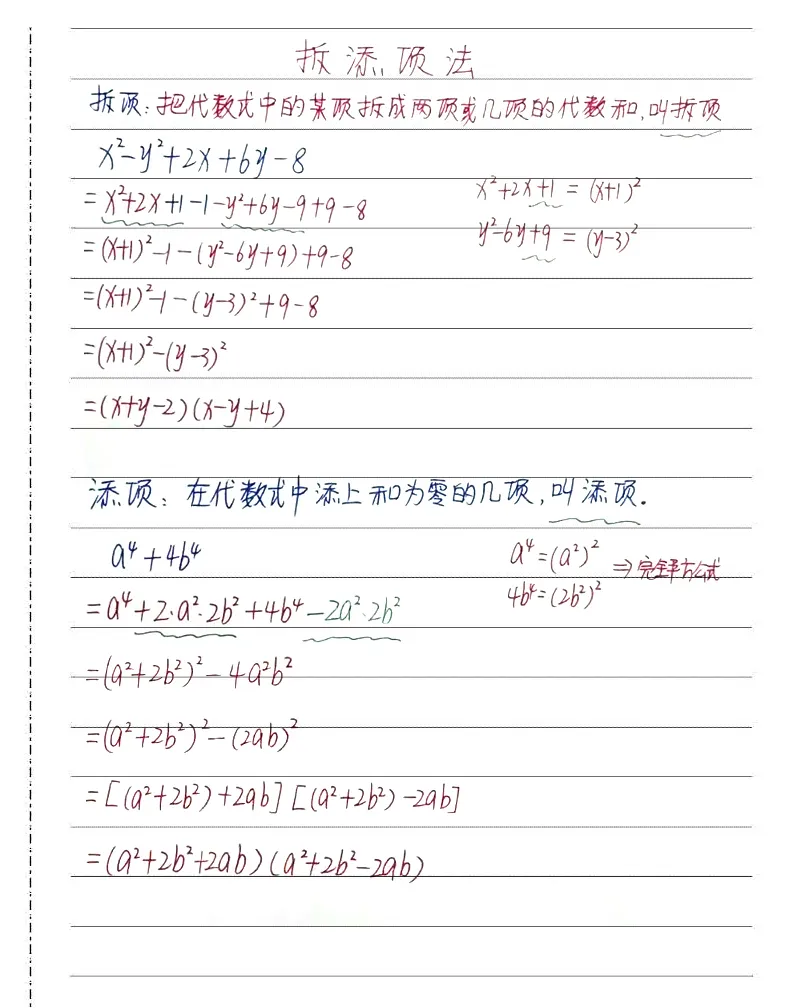 拆添项法
拆项：把代数式中的某项拆成两项或几项的代数和，叫拆项
x²-y²+2x+6y-8
=x²+2x+1-1-y²+6y-9+9-8
x²+2x+1=(x+1)²
=(x+1)²-1-(y²-6y+9)+9-8
y²-6y+9=(y-3)²
=(x+1)²-1-(y-3)²+9-8
=(x+1)²-(y-3)²
=(x+y-2)(x-y+4)
添项：在代数式中添上和为零的几项，叫添项.
a⁴+4b⁴
a⁴=(a²)²
4b⁴=(2b²)²
⇒完全平方公式
=a⁴+2·a²·2b²+4b⁴-2a²·2b²
=(a²+2b²)²-4a²b²
=(a²+2b²)²-(2ab)²
=[(a²+2b²)+2ab][(a²+2b²)-2ab]
=(a²+2b²+2ab)(a²+2b²-2ab)